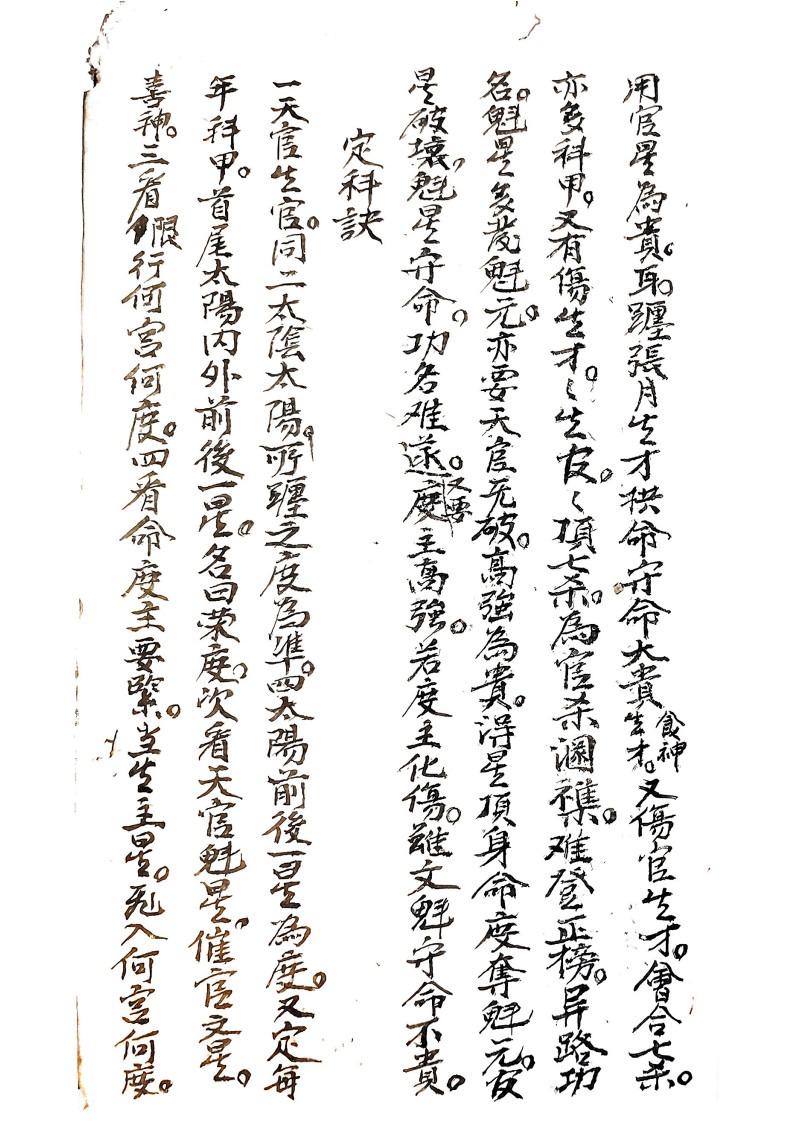 用官星為貴。耳。躔張月生才拱命守命大貴食神生才。又傷官生才。會合七杀。
亦多科甲。又有傷生才。々生官。々頂七杀。為官杀溷襍。难登正榜。异路功
名。魁星多發魁元。亦要天官无破。高強為貴。得星頂身命度奪魁元。官
星破壞，魁星守命。功名难遂。又要度主高強。若度主化傷。雖文魁守命不貴。
定科訣
一天官生官。同二太陰太陽。所躔之度為準。四太陽前後一星為度。又定每
年科甲。首尾太陽内外前後一星。名曰荣度。次看天官魁星。催官文星。
喜神。三看限行何宮何度。四看命度主要緊。当生主星。飛入何宮何度。